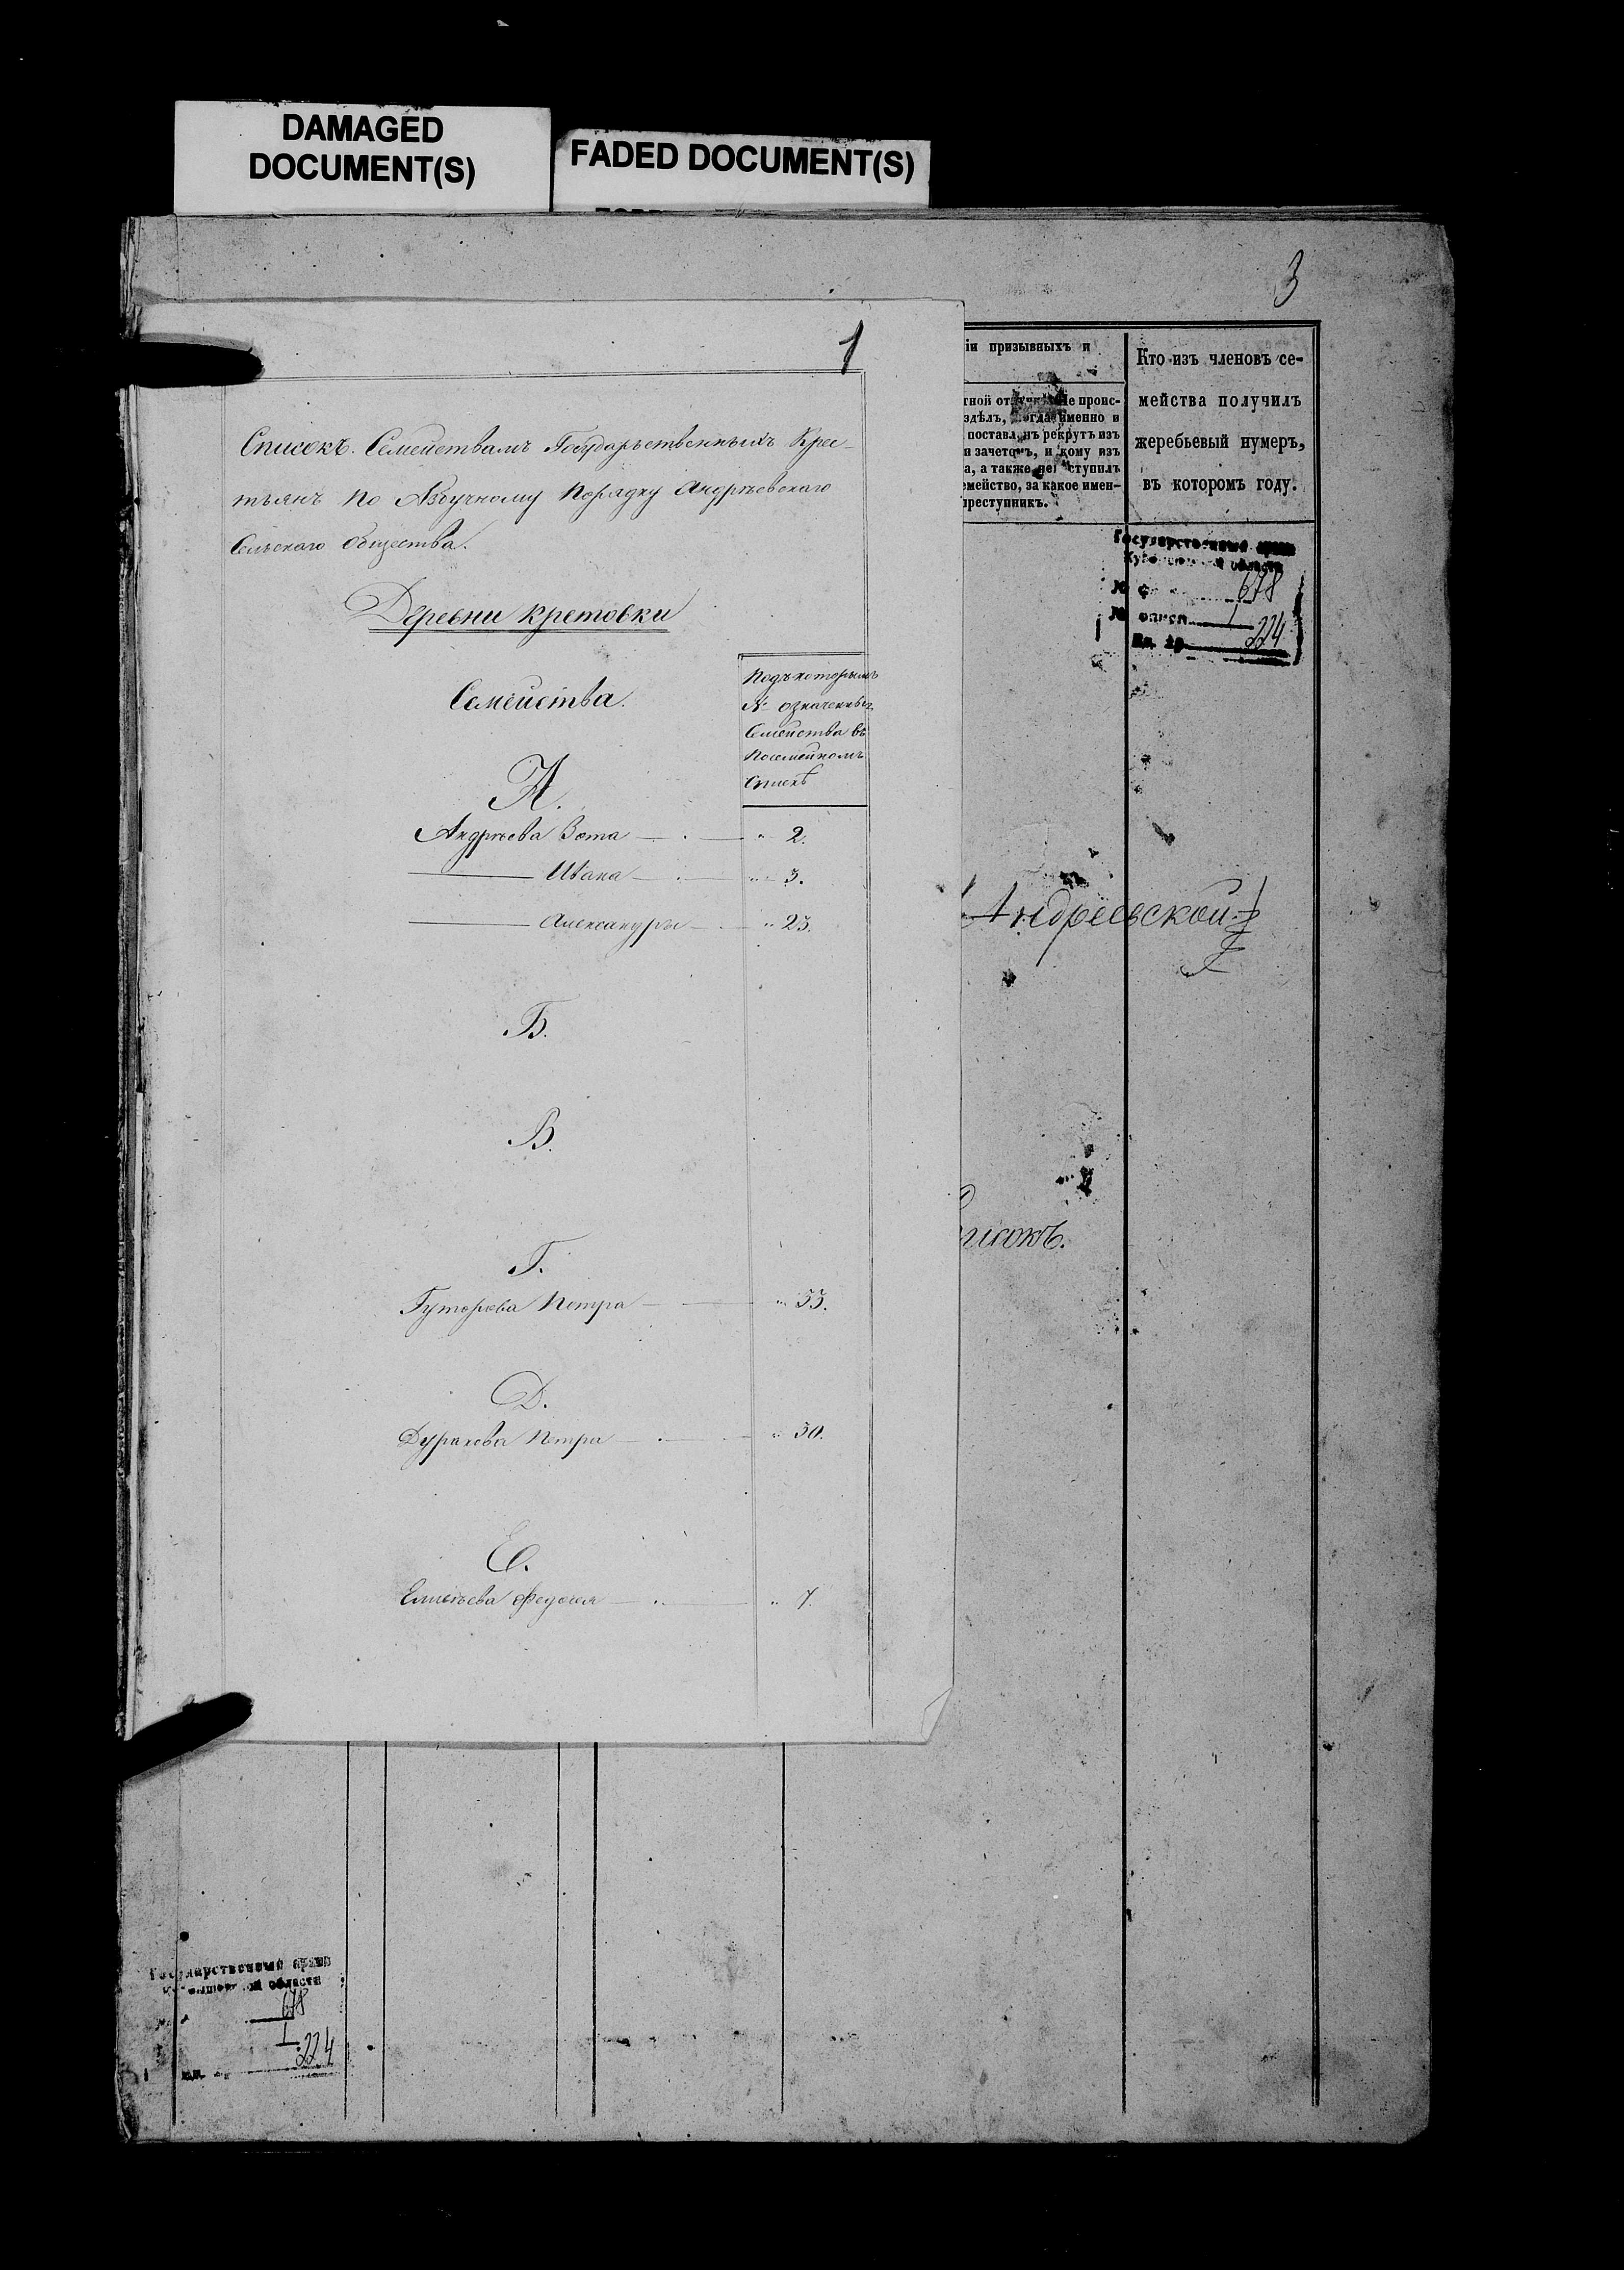 DAMAGED
DOCUMENT(S)
FADED DOCUMENT(S)
3
1
Списокъ Семействамъ Государственныхъ Крес-
тьянъ по Азбучному порядку Андрѣевскаго
Сельскаго Общества.
Деревни Кретовки
Семейства.
Подъ которымъ
№ означенныя
Семейства въ
Посемейномъ
Спискѣ
А.
Андрѣева Зота — " 2.
— Ивана — " 3.
— Александры — " 23.
Б.
В.
Г.
Гуторова Петра — " 33.
Д.
Дуракова Петра — " 30.
Е.
Елисѣева Федосея — " 7.
іи призывныхъ и
тной от не проис-
здѣлъ, когда именно и
поставленъ рекрутъ изъ
и зачетомъ, и кому изъ
а, а также не ступилъ
емейство, за какое имен-
преступникъ.
Кто изъ членовъ се-
мейства получилъ
жеребьевый нумеръ,
въ которомъ году.
Государственный архив
области
№ ф 678
№ описи 1
224
Андреевской
писокъ.
Государственный архив
области
678
1
224